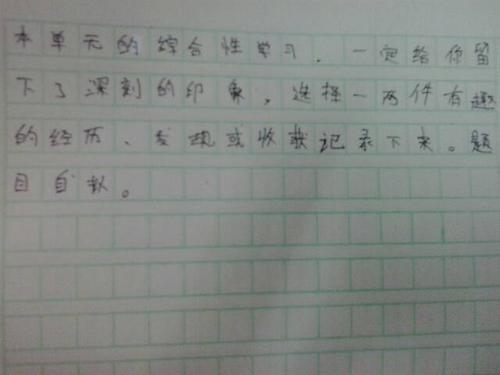 本单元的综合性学习，一定给你留
下了深刻的印象，选择一两件有趣
的经历、发现或收获记录下来。题
目自拟。